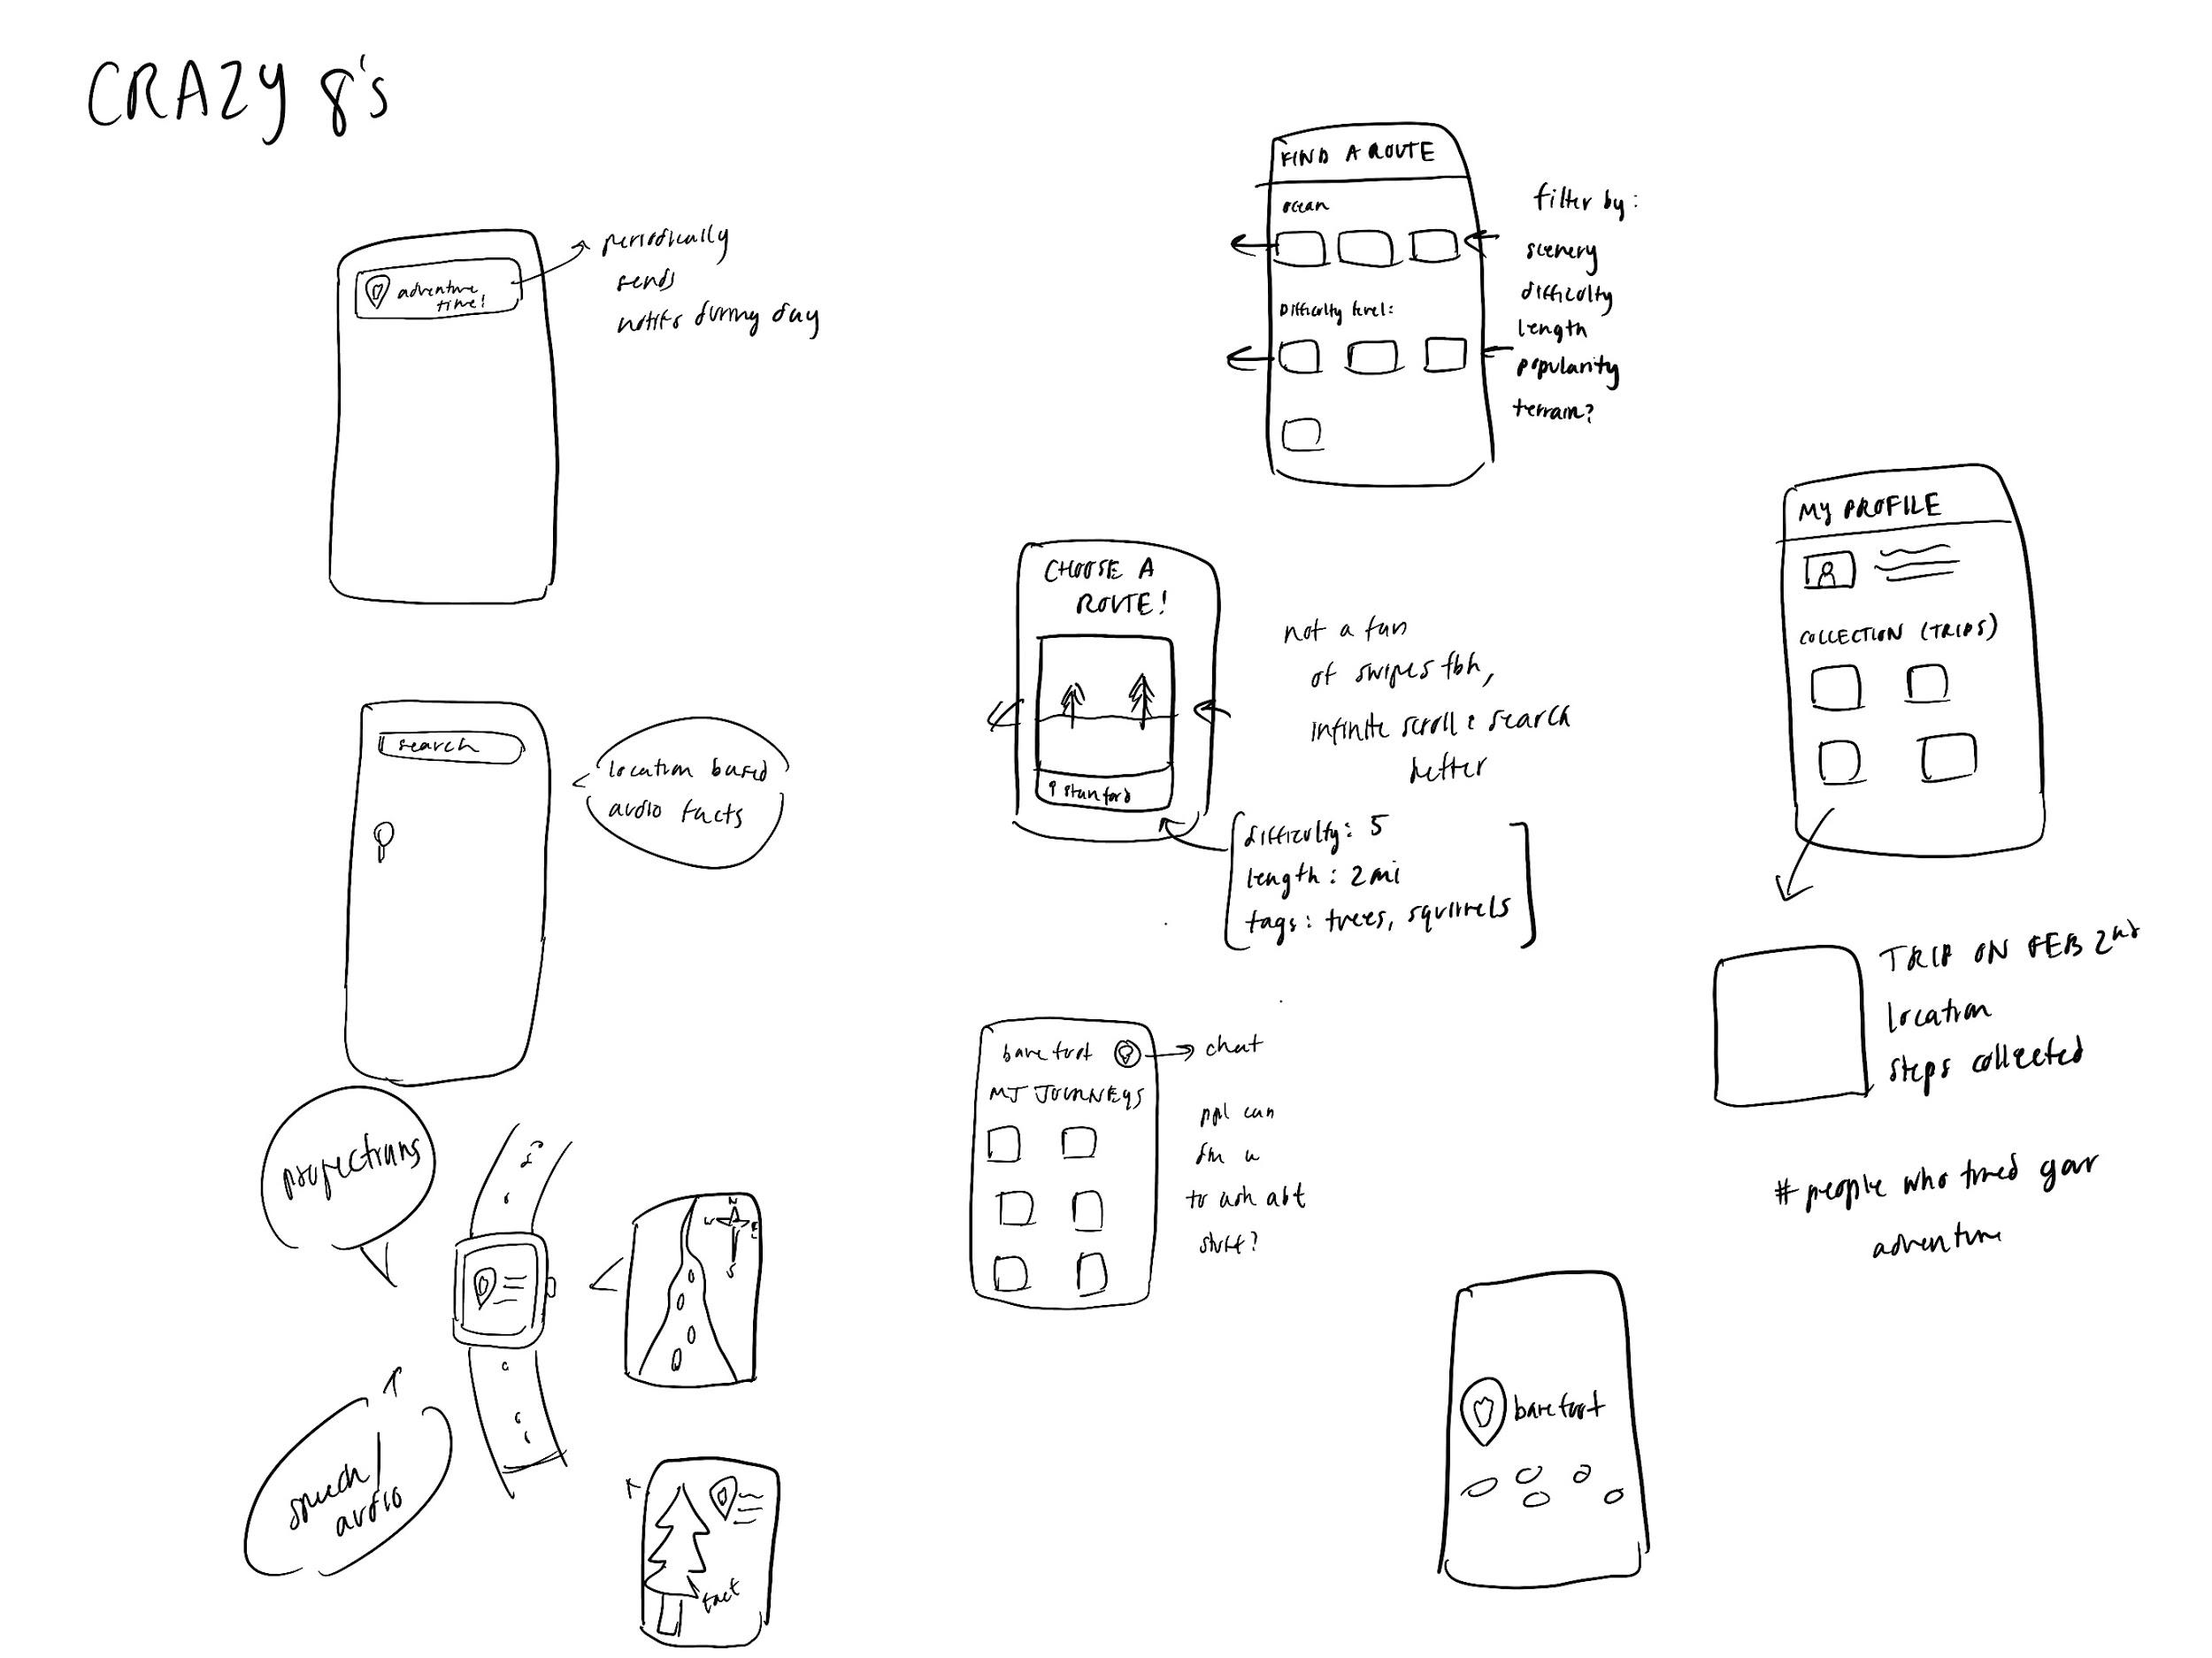 CRAZY 8's
adventure
time!
periodically
sends
notifs during day
search
location based
audio facts
projections
speech/
audio
N
W
E
S
fact
FIND A ROUTE
ocean
Difficulty level:
filter by:
scenery
difficulty
length
popularity
terrain?
CHOOSE A
ROUTE!
stanford
not a fan
of swipes tbh,
infinite scroll & search
better
difficulty: 5
length: 2mi
tags: trees, squirrels
barefoot
chat
MY JOURNEYS
ppl can
dm u
to ask abt
stuff?
MY PROFILE
COLLECTION (TRIPS)
TRIP ON FEB 2nd
location
steps collected
# people who tried your
adventure
barefoot